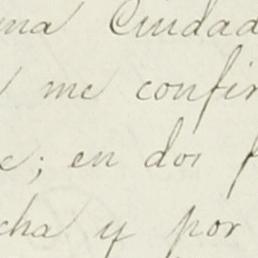 una Ciudad
me confir
e; en dos
cha y por